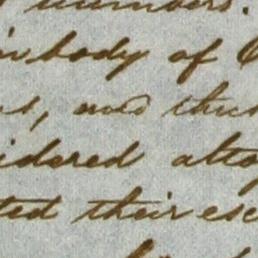 numbers.
body of
and thus
idered alto
ted their esc